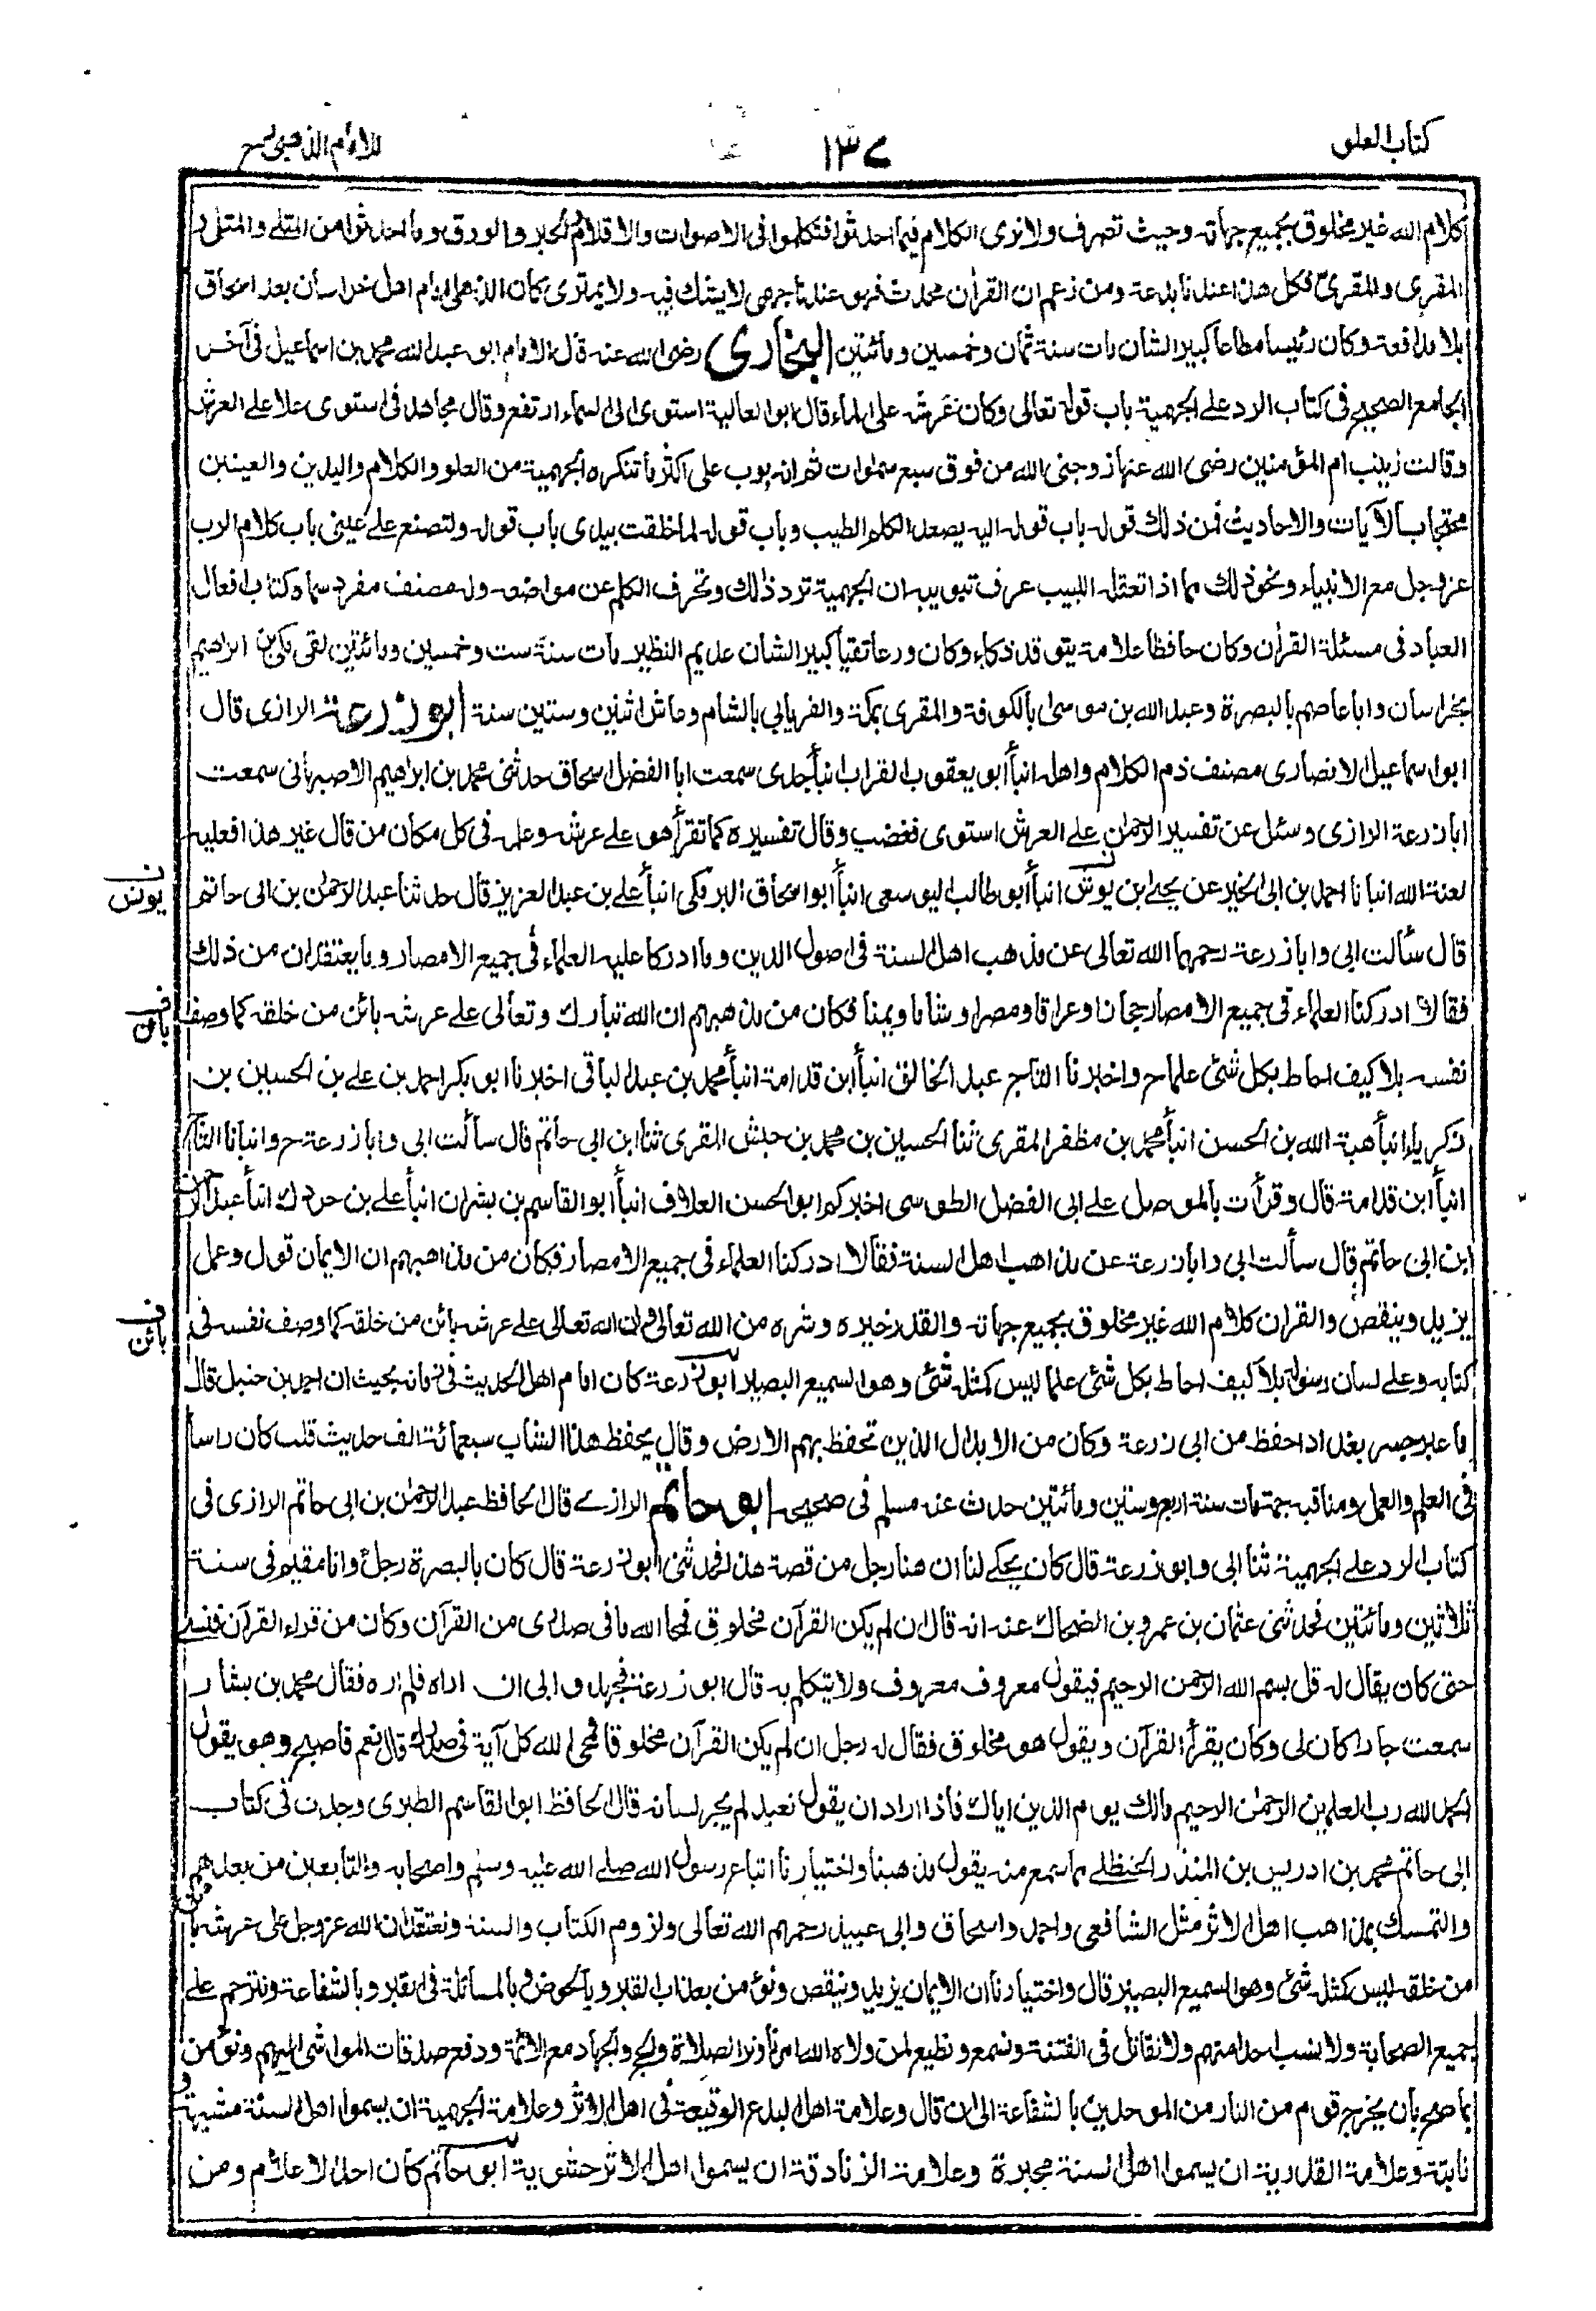 كتاب العلو
١٣٧
للامام الذهبي رح
كلام الله غير مخلوق بجميع جهاته وحيث تصرف ولا نرى الكلام فيما احدثوا فتكلموا فى الاصوات والاقلام والحبر والورق وما احدثوا من المتلى والمتلى و
المقرى والمقرئ فكل هذا عندنا بدعة ومن زعم ان القرآن محدث فهو عندنا جهمى لا يشك فيه ولا يمترى كان الذهلى امام اهل خراسان بعد اسحاق
بلا مدافعة وكان رئيسا مطاعا كبير الشان مات سنة ثمان وخمسين ومائتين البخارى رضى الله عنه قال الامام ابو عبد الله محمد بن اسماعيل فى آخر
الجامع الصحيح فى كتاب الرد على الجهمية باب قوله تعالى وكان عرشه على الماء قال ابو العالية استوى الى السماء ارتفع وقال مجاهد فى استوى علا على العرش
وقالت زينب ام المؤمنين رضى الله عنها زوجنى الله من فوق سبع سموات ثم انه بوب على اكثر ما تنكره الجهمية من العلو والكلام واليدين والعينين
محتجا بالآيات والاحاديث فمن ذلك قوله باب قوله اليه يصعد الكلم الطيب وباب قوله لما خلقت بيدى باب قوله ولتصنع على عينى باب كلام الرب
عز وجل مع الانبياء ونحو ذلك مما اذا تعقله اللبيب عرف تبويبه ان الجهمية ترد ذلك وتحرف الكلم عن مواضعه وله مصنف مفرد سماه كتاب افعال
العباد فى مسئلة القرآن وكان حافظا علامة يتوقد ذكاء وكان ورعا تقيا كبير الشان عديم النظير مات سنة ست وخمسين ومائتين لقى مكى بن ابراهيم
بخراسان وابا عاصم بالبصرة وعبد الله بن موسى بالكوفة والمقرى بمكة والفريابي بالشام وعاش اثنين وستين سنة ابو زرعة الرازى قال
ابو اسماعيل الانصارى مصنف ذم الكلام واهله انبأ ابو يعقوب القراب انبأ جدى سمعت ابا الفضل اسحاق حدثنى محمد بن ابراهيم الاصبهانى سمعت
ابا زرعة الرازى وسئل عن تفسير الرحمن على العرش استوى فغضب وقال تفسيره كما تقرأ هو على عرشه وعلمه فى كل مكان من قال غير هذا فعليه
لعنة الله انبأنا احمد بن ابى الخير عن يحيى ابن يوش انبأ ابو طالب اليوسفى انبأ ابو اسحاق البرمكى انبأ على بن عبد العزيز قال حدثنا عبد الرحمن بن ابى حاتم
ن يونس
قال سألت ابى وابا زرعة رحمهما الله تعالى عن مذهب اهل السنة فى اصول الدين وما ادركا عليه العلماء فى جميع الامصار وما يعتقدان من ذلك
فقالا ادركنا العلماء فى جميع الامصار حجازا وعراقا ومصرا وشاما ويمنا فكان من مذهبهم ان الله تبارك وتعالى على عرشه بائن من خلقه كما وصف
نفسه بلا كيف احاط بكل شئ علما ح واخبرنا التاج عبد الخالق انبأ ابن قدامة انبأ محمد بن عبد الباقى اخبرنا ابو بكر احمد بن على بن الحسين بن
زكريا انبأ هبة الله بن الحسن انبأ محمد بن مظفر المقرى ثنا الحسين بن محمد بن حبش المقرى ثنا ابن ابى حاتم قال سألت ابى وابا زرعة ح وانبأنا التاج
انبأ ابن قدامة قال وقرأت بالموصل على ابى الفضل الطوسى اخبركم ابو الحسن العلاف انبأ ابو القاسم بن بشران انبأ على بن حردك انبأ عبد الرحمن
ابن ابى حاتم قال سألت ابى وابا زرعة عن مذاهب اهل السنة فقالا ادركنا العلماء فى جميع الامصار فكان من مذاهبهم ان الايمان قول وعمل
يزيد وينقص والقرآن كلام الله غير مخلوق بجميع جهاته والقدر خيره وشره من الله تعالى وان الله تعالى على عرشه بائن من خلقه كما وصف نفسه فى
ف بائن
كتابه وعلى لسان رسوله بلا كيف احاط بكل شئ علما ليس كمثله شئ وهو السميع البصير ابو زرعة كان امام اهل الحديث فى زمانه بحيث ان احمد بن حنبل قال
ما عبر جسر بغداد احفظ من ابى زرعة وكان من الابدال الذين تحفظ بهم الارض وقال يحفظ هذا الشاب سبعمائة الف حديث قلت كان رأسا
فى العلم والعمل ومناقبه جمة مات سنة اربع وستين ومائتين حدث عنه مسلم فى صحيحه ابو حاتم الرازى قال الحافظ عبد الرحمن بن ابى حاتم الرازى فى
كتاب الرد على الجهمية ثنا ابى وابو زرعة قال كان يحكى لنا ان هنا رجل من قصة هذا فحدثنى ابو زرعة قال كان بالبصرة رجل وانا مقيم فى سنة
ثلاثين ومائتين فحدثنى عثمان بن عمرو بن الضحاك عنه انه قال ان لم يكن القرآن مخلوق فمحا الله ما فى صدرى من القرآن وكان من قراء القرآن فنسى
حتى كان يقال له قل بسم الله الرحمن الرحيم فيقول معروف معروف ولا يتكلم به قال ابو زرعة فجهدوا بى ان اراه فلم اره فقال محمد بن بشار
سمعت جارا كان لى وكان يقرأ القرآن ويقول هو مخلوق فقال له رجل ان لم يكن القرآن مخلوقا فمحى الله كل آية فى صدرك قال نعم فاصبح وهو يقول
الحمد لله رب العلمين الرحمن الرحيم مالك يوم الدين اياك فاذا اراد ان يقول نعبد لم يجر لسانه قال الحافظ ابو القاسم الطبرى وجدت فى كتاب
ابى حاتم محمد بن ادريس بن المنذر الحنظلى مما سمع منه يقول مذهبنا واختيارنا اتباع رسول الله صلى الله عليه وسلم واصحابه والتابعين من بعدهم
والتمسك بمذاهب اهل الاثر مثل الشافعى واحمد واسحاق وابى عبيد رحمهم الله تعالى ولزوم الكتاب والسنة ونعتقد ان الله عز وجل على عرشه بائن
من خلقه ليس كمثله شئ وهو السميع البصير قال واختيارنا ان الايمان يزيد وينقص ونؤمن بعذاب القبر وبالحوض وبالمسائلة فى القبر وبالشفاعة ونترحم على
جميع الصحابة ولا نسب احدا منهم ولا نقاتل فى الفتنة ونسمع ونطيع لمن ولاه الله امرنا ونرى الصلاة والحج والجهاد مع الائمة ودفع صدقات المواشى اليهم ونؤمن
بما صح بان يخرج قوم من النار من الموحدين بالشفاعة الى ان قال وعلامة اهل البدع الوقيعة فى اهل الاثر وعلامة الجهمية ان يسموا اهل السنة مشبهة و
نابتة وعلامة القدرية ان يسموا اهل السنة مجبرة وعلامة الزنادقة ان يسموا اهل الاثر حشوية ابو حاتم كان احد الاعلام ومن